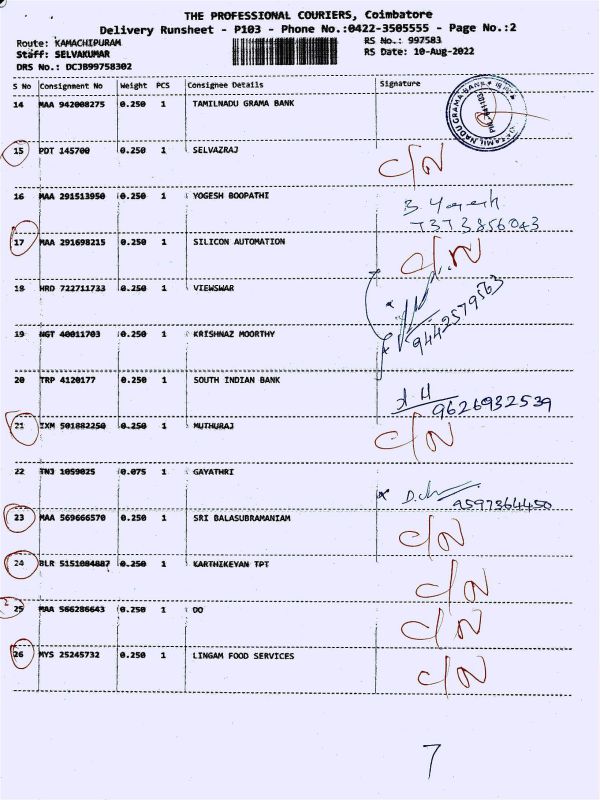 THE PROFESSIONAL COURIERS, Coimbatore
Delivery Runsheet - P103 - Phone No.:0422-3505555 - Page No.:2
Route: KAMACHIPURAM
RS No.: 997583
Staff: SELVAKUMAR
RS Date: 10-Aug-2022
DRS No.: DCJB99758302
S No Consignment No Weight PCS Consignee Details Signature
14 MAA 942008275 0.250 1 TAMILNADU GRAMA BANK
TAMILNADU GRAMA BANK
15 PDT 145700 0.250 1 SELVAZRAJ
16 MAA 291513950 0.250 1 YOGESH BOOPATHI B. Yogesh
7373856043
17 MAA 291698215 0.250 1 SILICON AUTOMATION
18 HRD 722711733 0.250 1 VIEWSWAR
9442579563
19 NGT 40011703 0.250 1 KRISHNAZ MOORTHY
20 TRP 4120177 0.250 1 SOUTH INDIAN BANK
9626932539
21 IXM 501882250 0.250 1 MUTHURAJ
22 TNJ 1059025 0.075 1 GAYATHRI
9597364450
23 MAA 569666570 0.250 1 SRI BALASUBRAMANIAM
24 BLR 5151084887 0.250 1 KARTHIKEYAN TPT
25 MAA 566286643 0.250 1 DO
26 MYS 25245732 0.250 1 LINGAM FOOD SERVICES
7